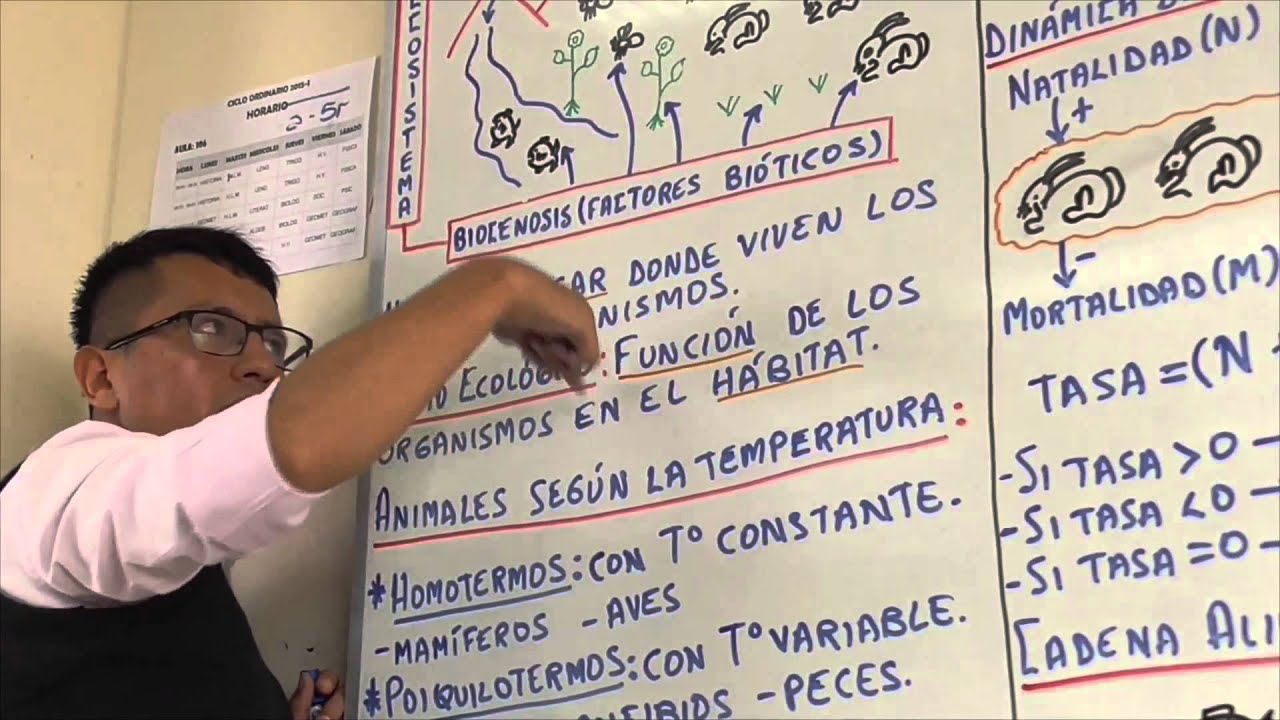 CICLO ORDINARIO 2015-I
HORARIO
2-5
AULA: 106
HORA LUNES MARTES MIERCOLES JUEVES VIERNES SÁBADO
HISTORIA H.L.M LENG TRIGO H.V FISICA
HISTORIA H.L.M LENG TRIGO SOC PSIC
GEOMET H.L.M LITERAT BIOLOG GEOMET GEOGRAF
BIOLOG
H.V GEOMET GEOGRAF
ECOSISTEMA
BIOCENOSIS (FACTORES BIÓTICOS)
DONDE VIVEN LOS
ECOLÓGICO: FUNCIÓN DE LOS
ORGANISMOS EN EL HÁBITAT.
ANIMALES SEGÚN LA TEMPERATURA:
* HOMOTERMOS: CON Tº CONSTANTE.
-MAMÍFEROS -AVES
* POIQUILOTERMOS: CON Tº VARIABLE.
-PECES.
DINÁMICA
NATALIDAD (N)
+
-
MORTALIDAD (M)
TASA = (N
-SI TASA > 0 -
-SI TASA < 0 -
-SI TASA = 0 -
CADENA ALI